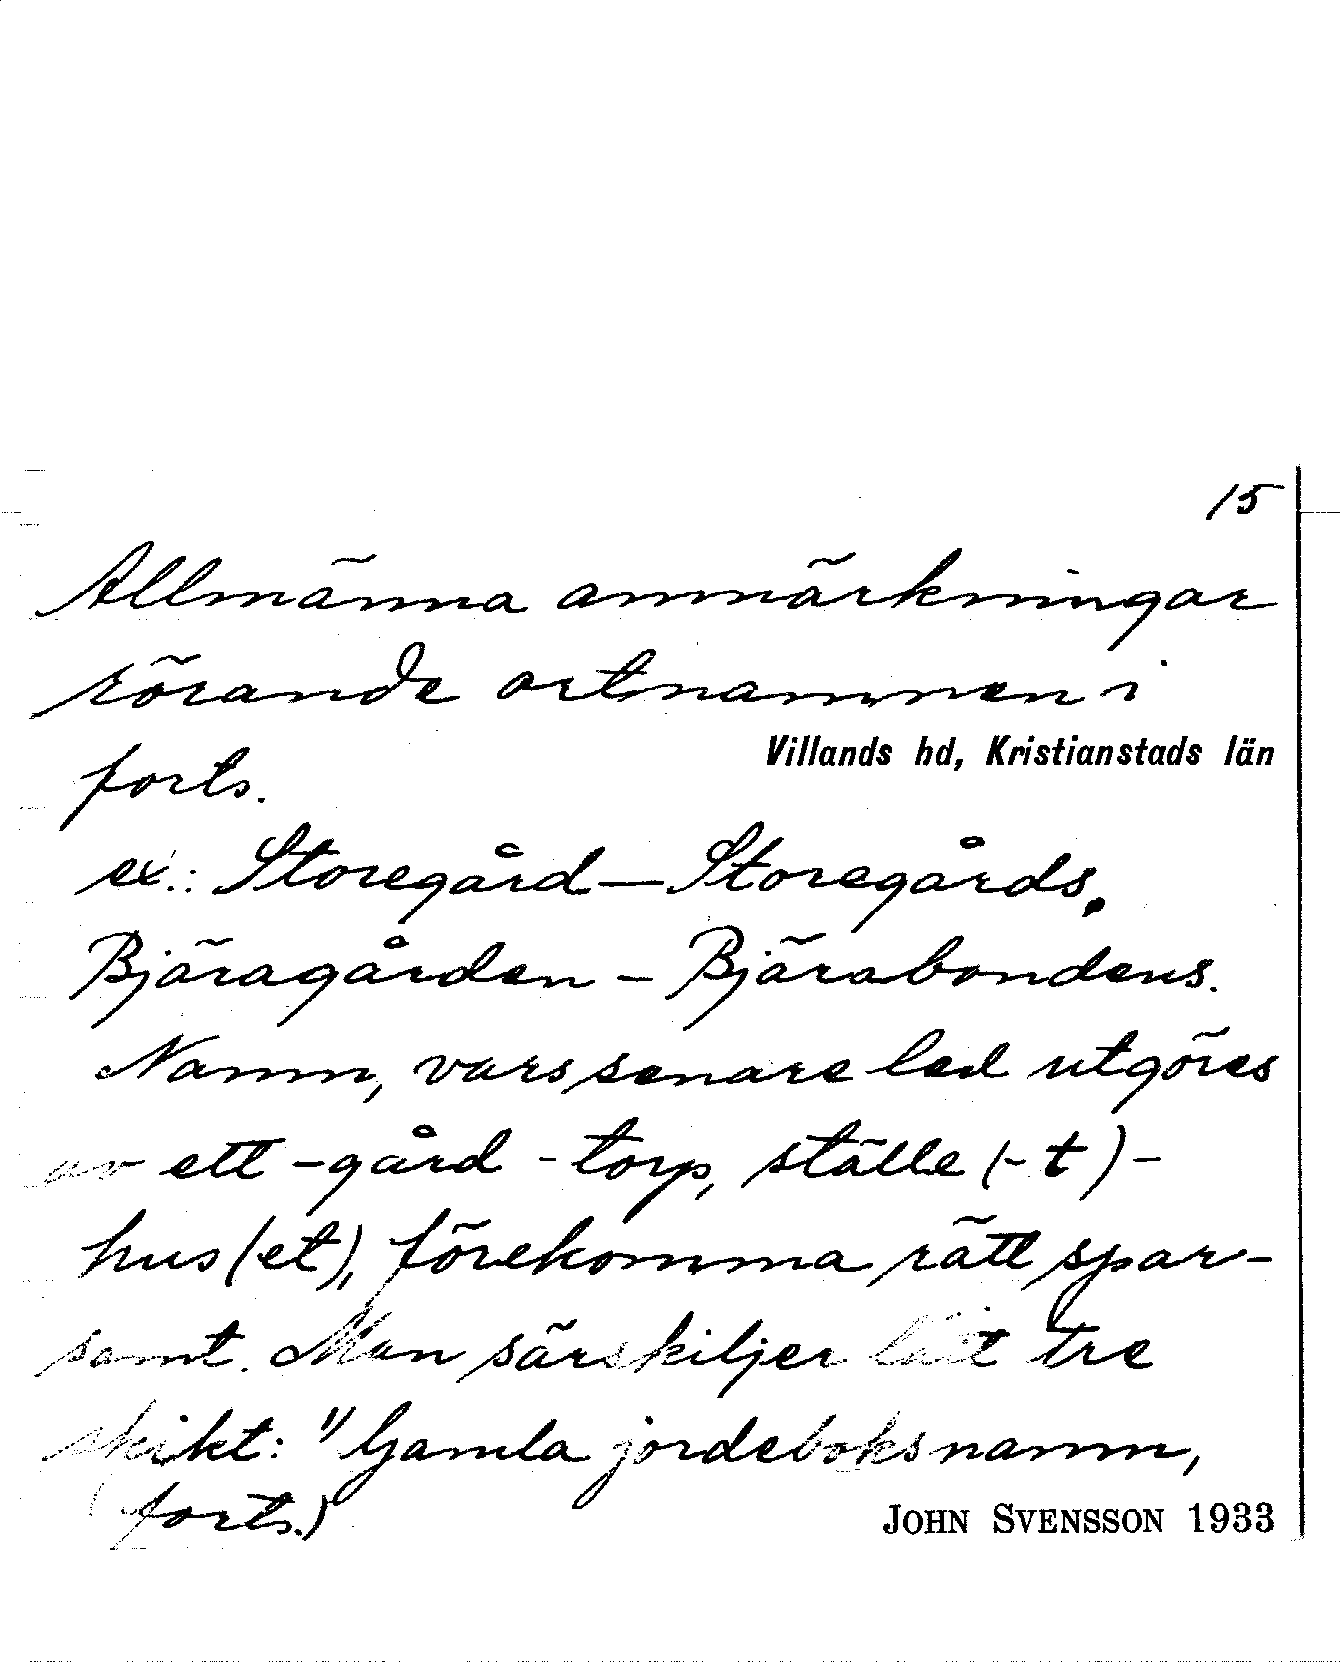 15
Allmänna anmärkningar
rörande ortnamnen i
Villands hd, Kristianstads län
forts.
ex.: Storegård – Storegårds,
Bjäragården – Bjärabondens.
Namn, vars senare led utgöres
av ett -gård -torp, ställe (-t) -
hus (et), förekomma rätt spar-
samt. Man särskiljer lätt tre
skikt: 1) Gamla jordeboksnamn,
(forts.)
JOHN SVENSSON 1933